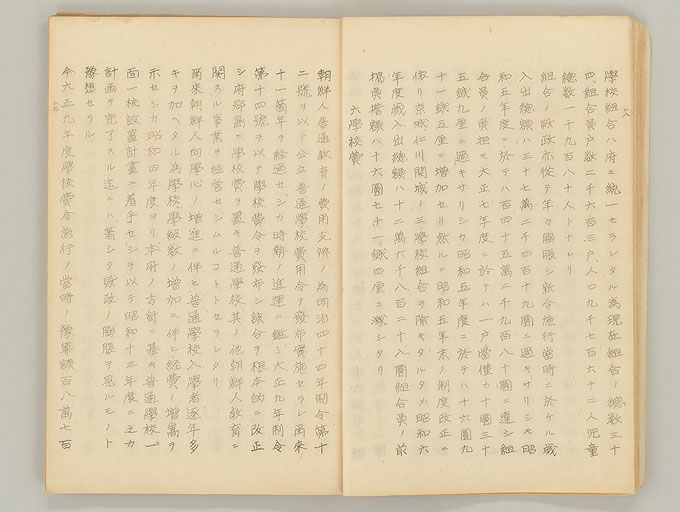 學校組合ハ府ニ統一セラレタル為現在組合ノ總数三十
四、組合員戸数二千六百三戸、人口九千七百六十二人児童
總数一千九百八十人トナレリ
組合ノ財政亦從テ年々膨脹シ敎令施行當時ニ於ケル歳
入出總額ハ三十七萬二千四百十九圓ニ過キサリシモ昭
和五年度ニ於テハ百四十五萬二千九百八十圓ニ達シ組
合員ノ負担モ大正七年度ニ於テハ一戸當僅カ十圓三十
五錢九厘ニ過キサリシカ昭和五年度ニ於テハ十六圓九
十一錢五厘ニ増加セリ然ルニ昭和五年末ノ制度改正ニ
依リ京城仁川開城ノ三學校組合ヲ除キタルタメ昭和六
年度歳入出總額ハ十二萬六千八百二十八圓組合員ノ前
揭負擔額ハ十六圓七十一錢四厘ニ減シタリ
六 學校費
朝鮮人普通教育ノ費用支辨ノ為明治四十四年制令第十
二號ヲ以テ公立普通學校費用令ヲ發布實施セラレ爾来
十一箇年ヲ経過セシカ時勢ノ進運ニ鑑ミ大正九年制令
第十四號ヲ以テ學校費令ヲ發布シ該令ヲ根本的ニ改正
シ府郡島ニ學校費ヲ置キ普通學校其ノ他朝鮮人教育ニ
関スル事業ヲ経營セシムルコトトセラレタリ
爾來朝鮮人向學心ノ増進ニ伴ヒ普通學校入學者逐年多
キヲ加ヘタル為學校學級数ノ増加ニ伴ヒ経費ノ増嵩ヲ
示セシカ昭和四年度ヨリ本府ノ方針ニ基キ普通學校一
面一校設置計畫ニ着手セシヲ以テ昭和十三年度ニ之カ
計画ヲ完了スル迄ニハ著シク財政ノ膨脹ヲ見ルモノト
豫想セラル
今大正九年度學校費令施行ノ當時ノ豫算額百八萬七百